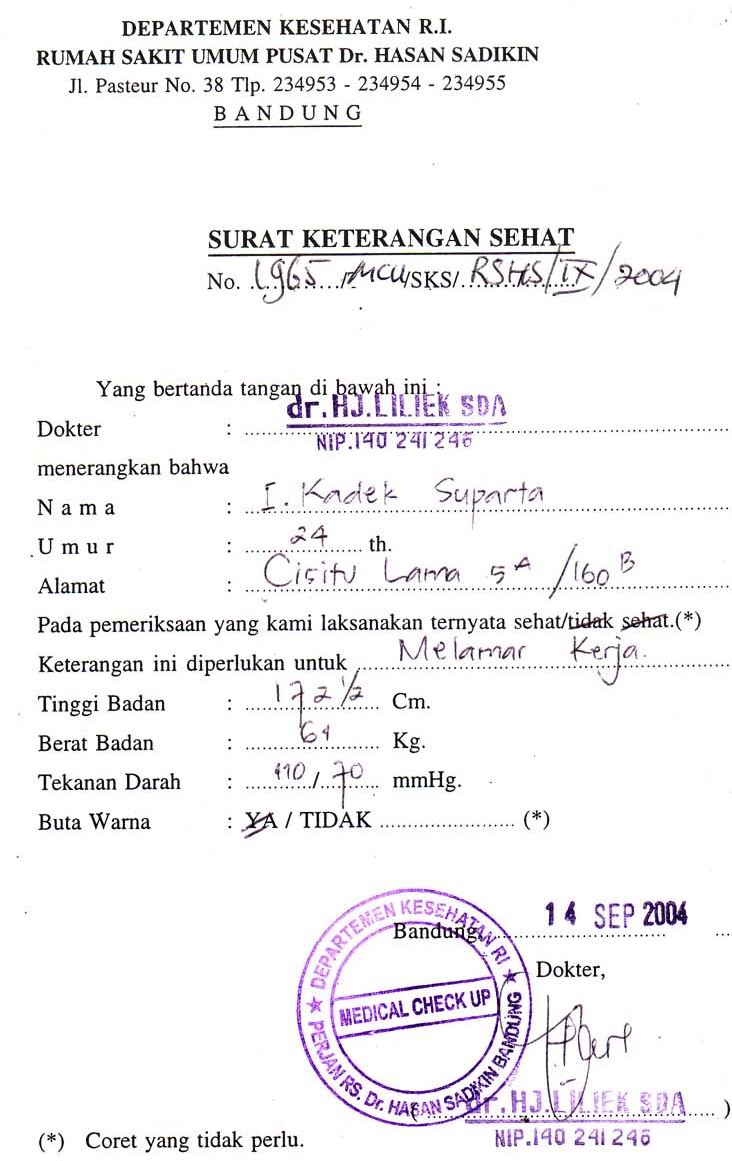 DEPARTEMEN KESEHATAN R.I.
RUMAH SAKIT UMUM PUSAT Dr. HASAN SADIKIN
Jl. Pasteur No. 38 Tlp. 234953 - 234954 - 234955
BANDUNG
SURAT KETERANGAN SEHAT
No. 1965/MCU/SKS/RSHS/IX/2004
Yang bertanda tangan di bawah ini :
Dokter : dr.HJ.LILIEK SDA
NIP.140 241 246
menerangkan bahwa
Nama : I. Kadek Suparta
Umur : 24 th.
Alamat : Cisitu Lama 5A/160B
Pada pemeriksaan yang kami laksanakan ternyata sehat/tidak sehat.(*)
Keterangan ini diperlukan untuk Melamar Kerja.
Tinggi Badan : 172 1/2 Cm.
Berat Badan : 61 Kg.
Tekanan Darah : 110/70 mmHg.
Buta Warna : YA / TIDAK (*)
Bandung, 14 SEP 2004
Dokter,
DEPARTEMEN KESEHATAN RI
MEDICAL CHECK UP
PERJAN RS. Dr. HASAN SADIKIN BANDUNG
(dr.HJ.LILIEK SDA)
NIP.140 241 246
(*) Coret yang tidak perlu.